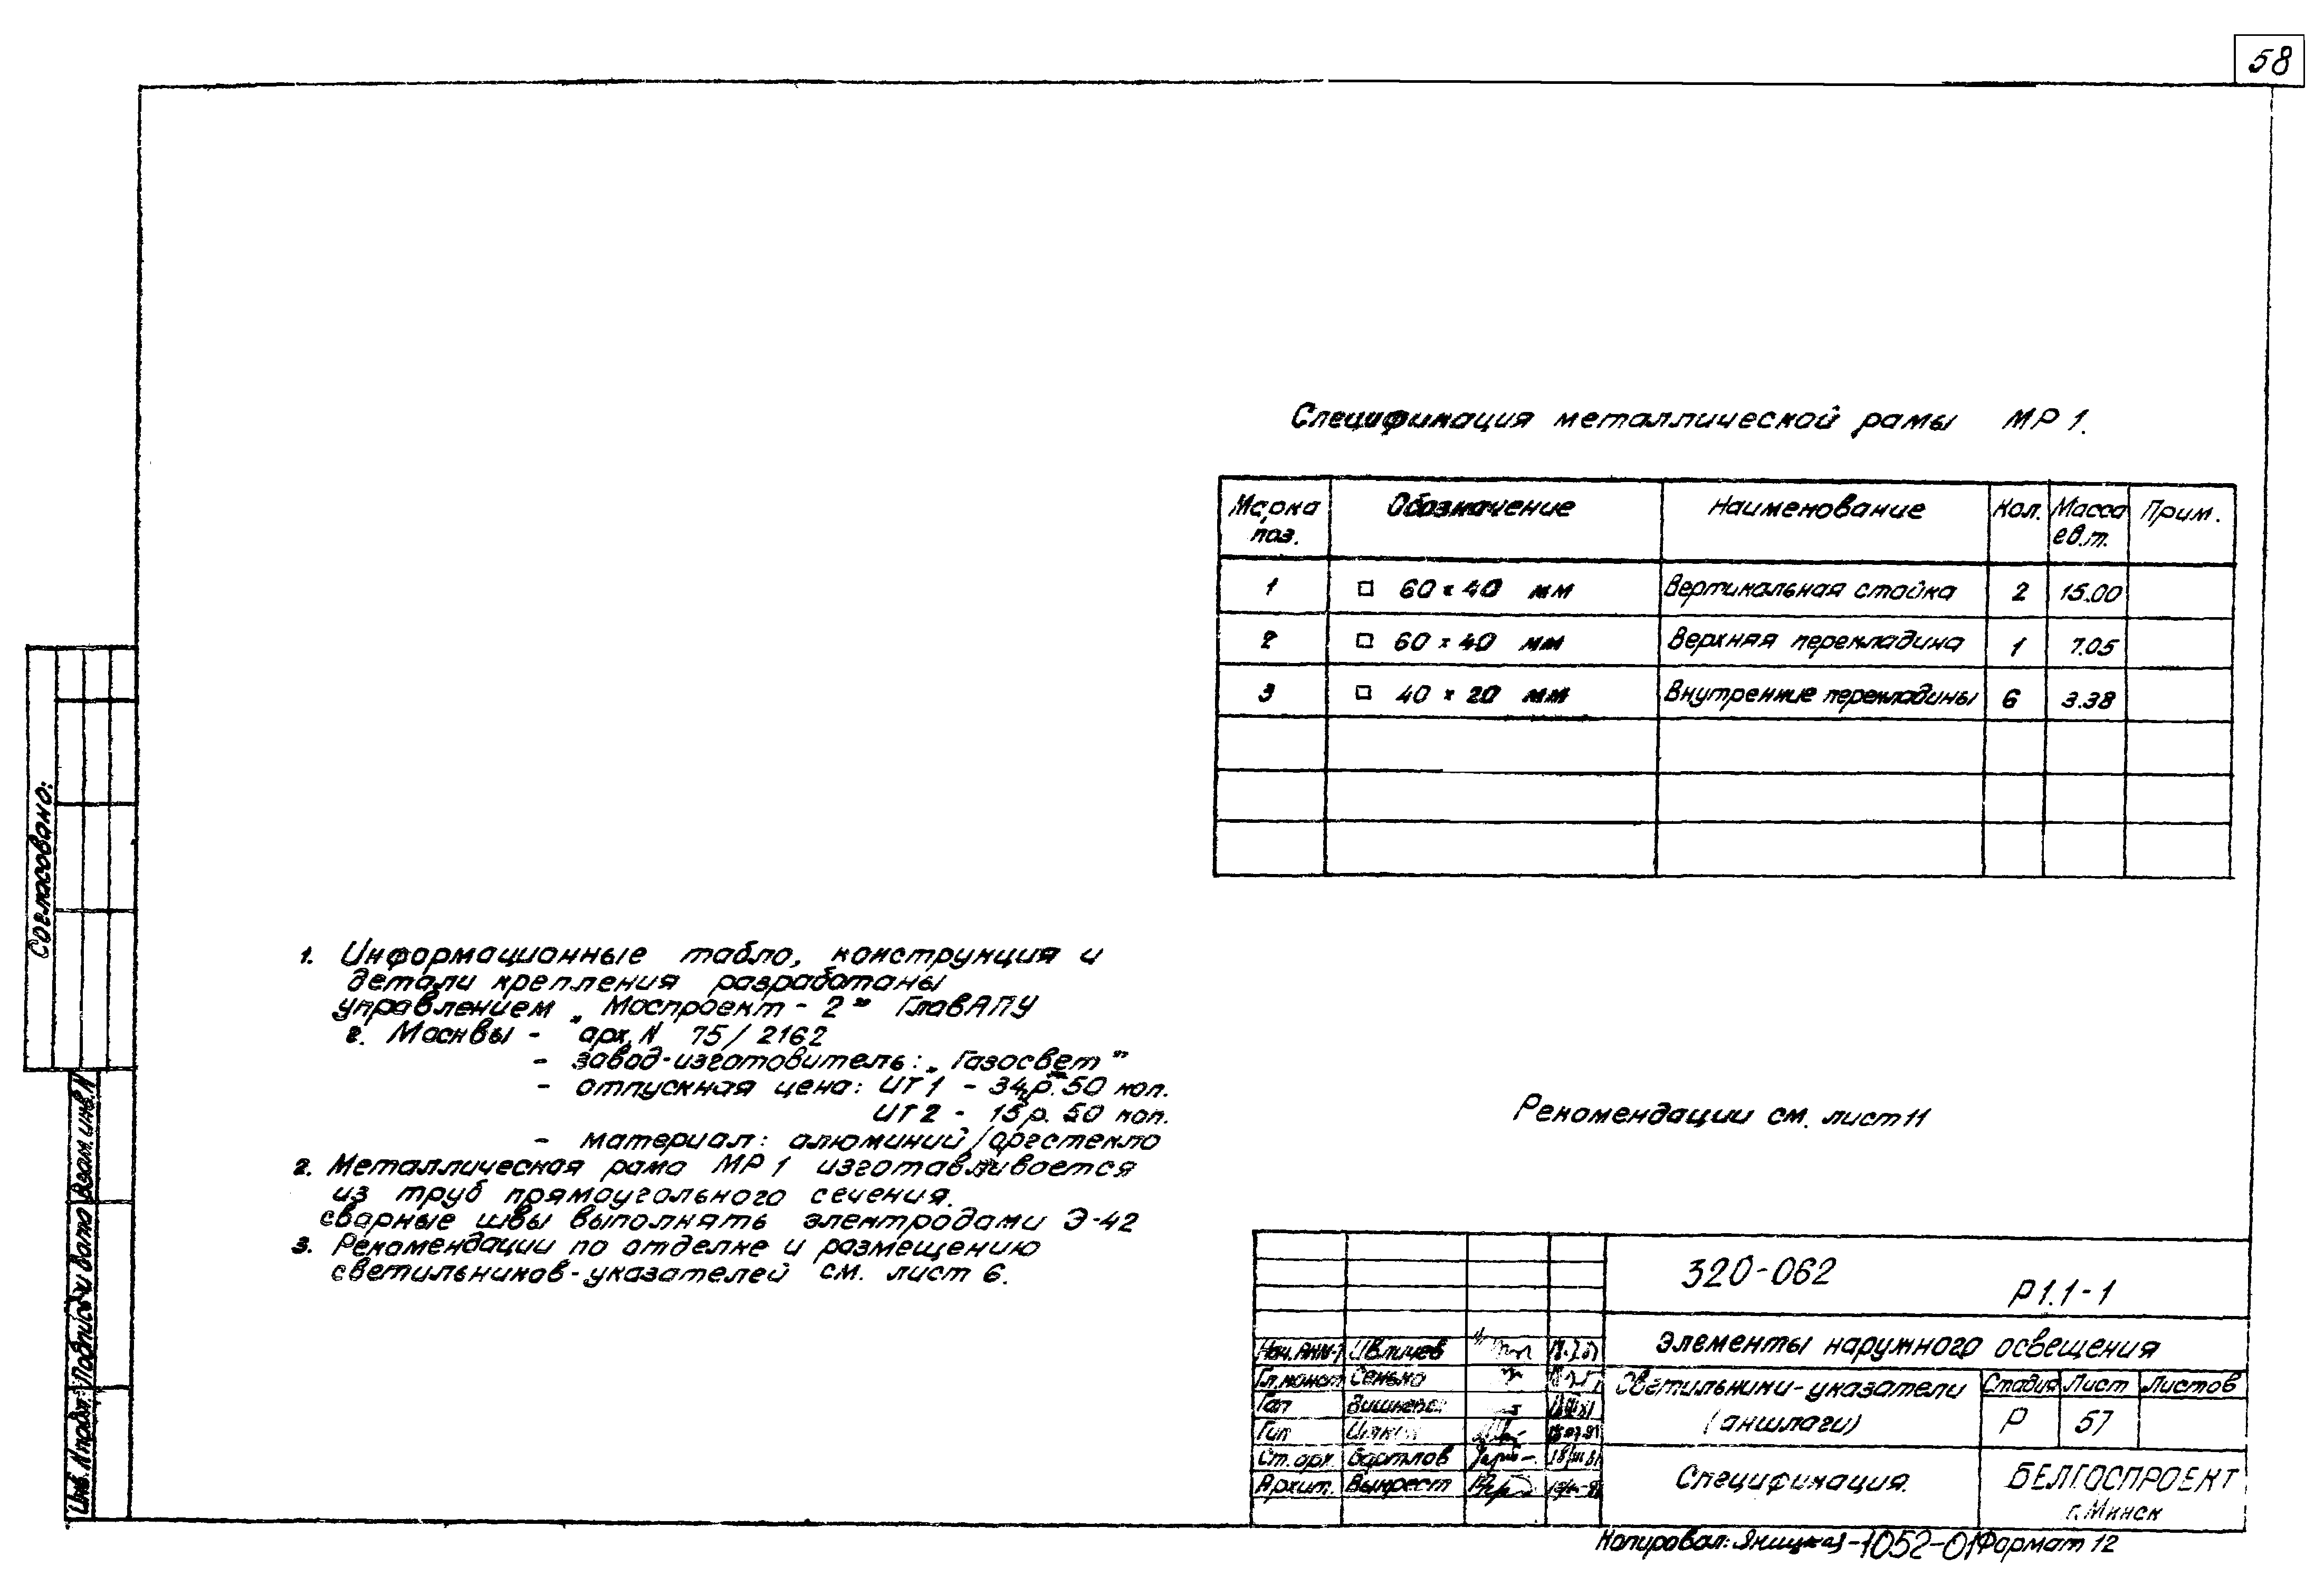 58
Спецификация металлической рамы МР 1.
Марка поз. Обозначение Наименование Кол. Масса ев.т. Прим.
1 □ 60 × 40 мм Вертикальная стойка 2 15.00
2 □ 60 × 40 мм Верхняя перекладина 1 7.05
3 □ 40 × 20 мм Внутренние перекладины 6 3.38
Согласовано:
Взам. инв. N
Подпись и дата
Инв. N подл.
1. Информационные табло, конструкция и
детали крепления разработаны
управлением „Моспроект - 2" ГлавАПУ
г. Москвы - арх. N 75/2162
- завод-изготовитель: „Газосвет"
- отпускная цена: ИТ1 - 34 р. 50 коп.
ИТ2 - 15 р. 50 коп.
- материал: алюминий/оргстекло
2. Металлическая рама МР 1 изготавливается
из труб прямоугольного сечения.
сварные швы выполнять электродами Э-42
3. Рекомендации по отделке и размещению
светильников-указателей см. лист 6.
Рекомендации см. лист 11
320-062 Р1.1-1
Элементы наружного освещения
Светильники-указатели
(аншлаги)
Стадия Лист Листов
Р 57
Спецификация.
БЕЛГОСПРОЕКТ
г. Минск
Нач. Ивличев
Гл. конст Сенько
Гап
Гип
Ст. арх. Бартлов
Архит. Выкрест
Копировал: Яницкая -1052-01 Формат 12